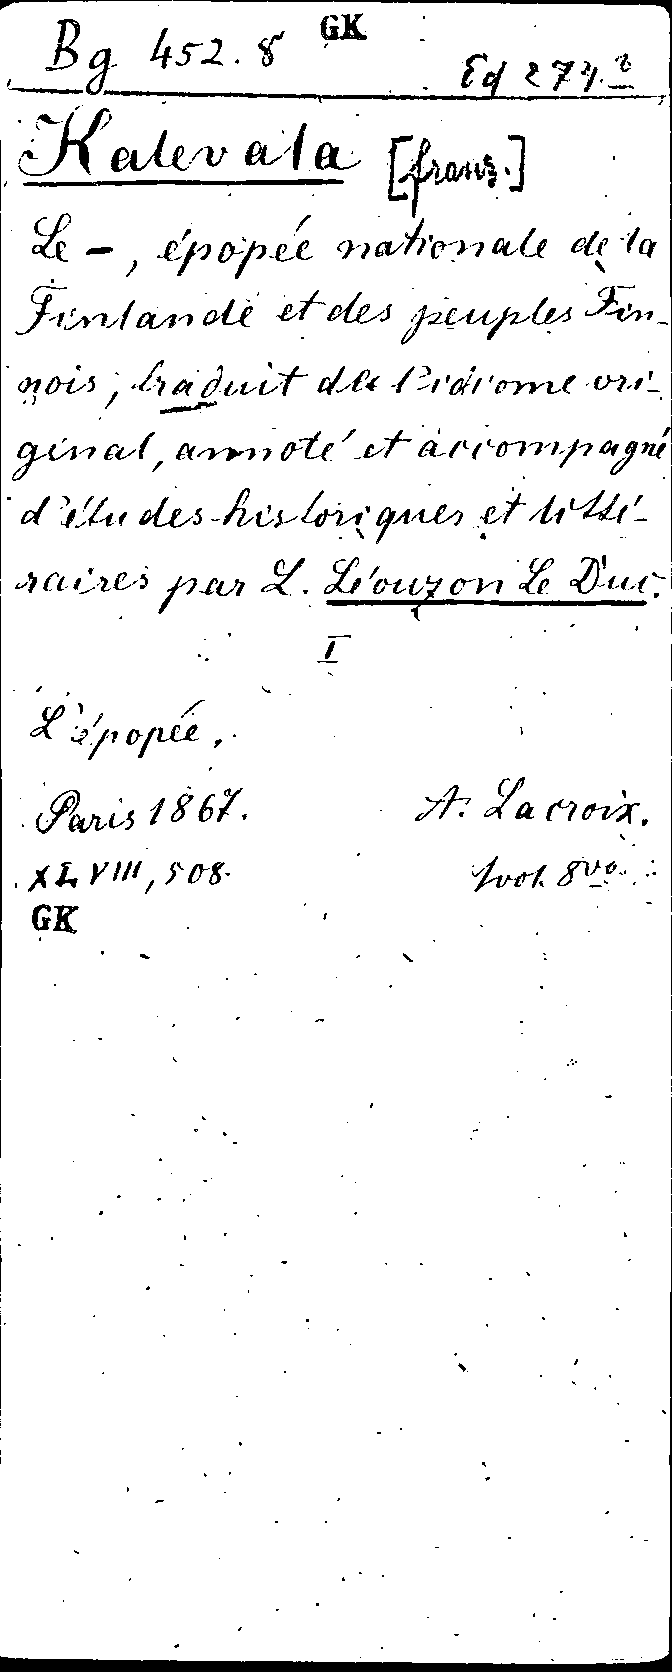 GK
Bg 452.8 Ed 274.
Kalevala [franz.]
Le –, épopée nationale de la
Finlande et des peuples Fin-
nois, traduit de l'idiome ori-
ginal, annoté et accompagné
d'études historiques et litté-
raires par L. Léouzon Le Duc.
I
L'épopée.
Paris 1867. A. Lacroix.
XLVIII, 508. 1 vol. 8vo.
GK